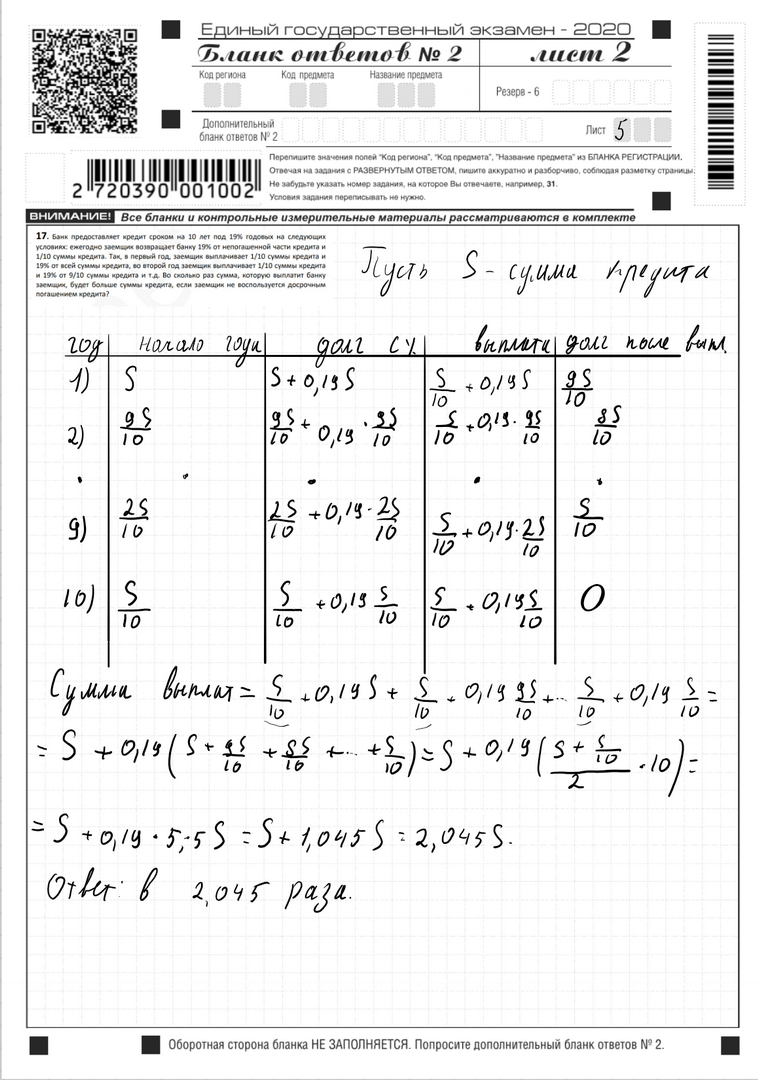 Единый государственный экзамен - 2020
Бланк ответов № 2 лист 2
Код региона Код предмета Название предмета
Резерв - 6
Дополнительный бланк ответов № 2 Лист 5
Перепишите значения полей "Код региона", "Код предмета", "Название предмета" из БЛАНКА РЕГИСТРАЦИИ.
Отвечая на задания с РАЗВЕРНУТЫМ ОТВЕТОМ, пишите аккуратно и разборчиво, соблюдая разметку страницы.
Не забудьте указать номер задания, на которое Вы отвечаете, например, 31.
Условия задания переписывать не нужно.
2 720390 001002
ВНИМАНИЕ! Все бланки и контрольные измерительные материалы рассматриваются в комплекте
17. Банк предоставляет кредит сроком на 10 лет под 19% годовых на следующих
условиях: ежегодно заемщик возвращает банку 19% от непогашенной части кредита и
1/10 суммы кредита. Так, в первый год, заемщик выплачивает 1/10 суммы кредита и
19% от всей суммы кредита, во второй год заемщик выплачивает 1/10 суммы кредита
и 19% от 9/10 суммы кредита и т.д. Во сколько раз сумма, которую выплатит банку
заемщик, будет больше суммы кредита, если заемщик не воспользуется досрочным
погашением кредита?
Пусть S - сумма кредита
год начало года долг с %. выплата долг после выпл.
1) S S + 0,19S S/10 + 0,19S 9S/10
2) 9S/10 9S/10 + 0,19 · 9S/10 S/10 + 0,19 · 9S/10 8S/10
. . . . .
9) 2S/10 2S/10 + 0,19 · 2S/10 S/10 + 0,19 · 2S/10 S/10
10) S/10 S/10 + 0,19 S/10 S/10 + 0,19S/10 0
Сумма выплат = S/10 + 0,19S + S/10 + 0,19 9S/10 + ... S/10 + 0,19 S/10 =
= S + 0,19(S + 9S/10 + 8S/10 + ... + S/10) = S + 0,19((S + S/10)/2 · 10) =
= S + 0,19 · 5,5S = S + 1,045S = 2,045S.
Ответ: в 2,045 раза.
Оборотная сторона бланка НЕ ЗАПОЛНЯЕТСЯ. Попросите дополнительный бланк ответов № 2.